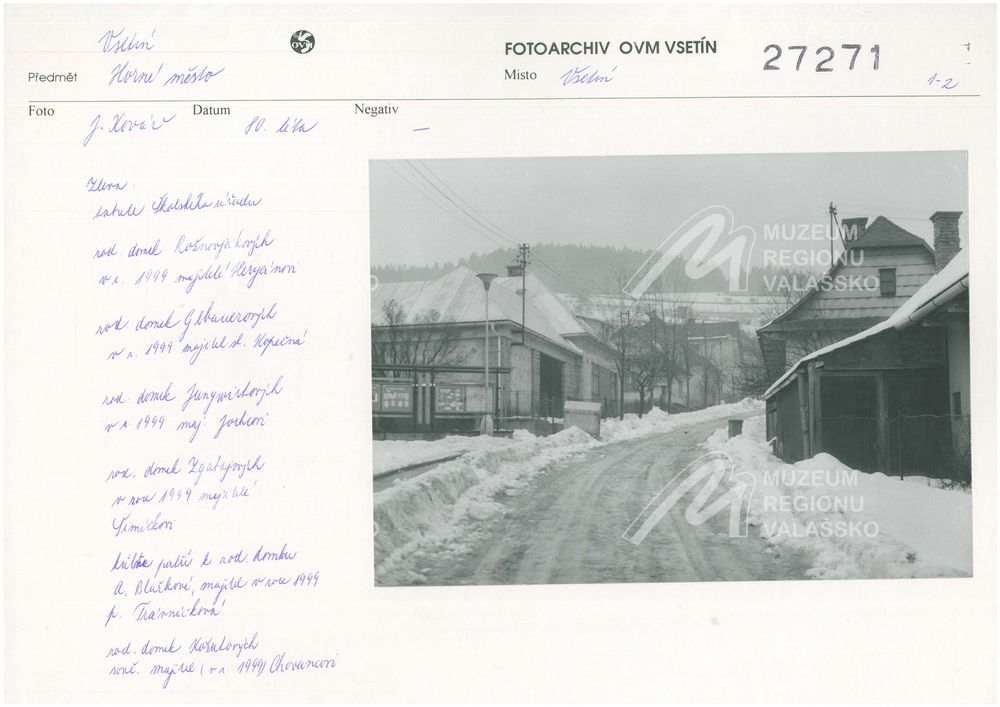 Vsetín
OVM
FOTOARCHIV OVM VSETÍN
27271
Předmět Horné město
Místo Vsetín
1-2
Foto J. Kovář
Datum 80. léta
Negativ —
Zleva:
tabule Školského úřadu
rod. domek Rožnovjákových
v r. 1999 majitelé Heryánovi
rod. domek Gebauerových
v r. 1999 majitel sl. Kopečná
rod. domek Jungwirthových
v r. 1999 maj. Jochcovi
rod. domek Zgabajových
v roce 1999 majitelé
Šimíčkovi
kůlna patří k rod. domku
A. Blažkové, majitel v roce 1999
p. Trávníčková
rod. domek Košutových
souč. majitel (v r. 1999) Chovancovi
MUZEUM
REGIONU
VALAŠSKO
MUZEUM
REGIONU
VALAŠSKO